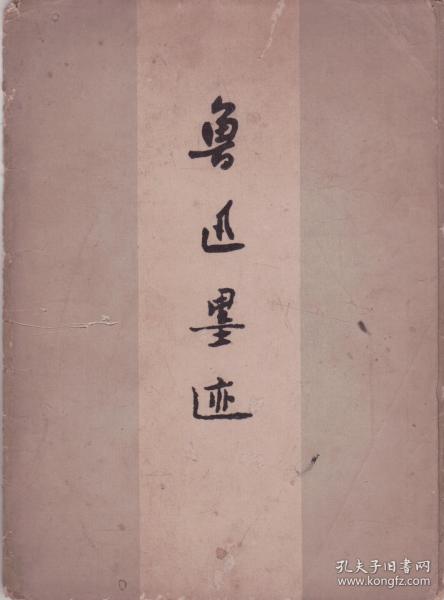 鲁迅墨迹
孔夫子旧书网
www.kongfz.com